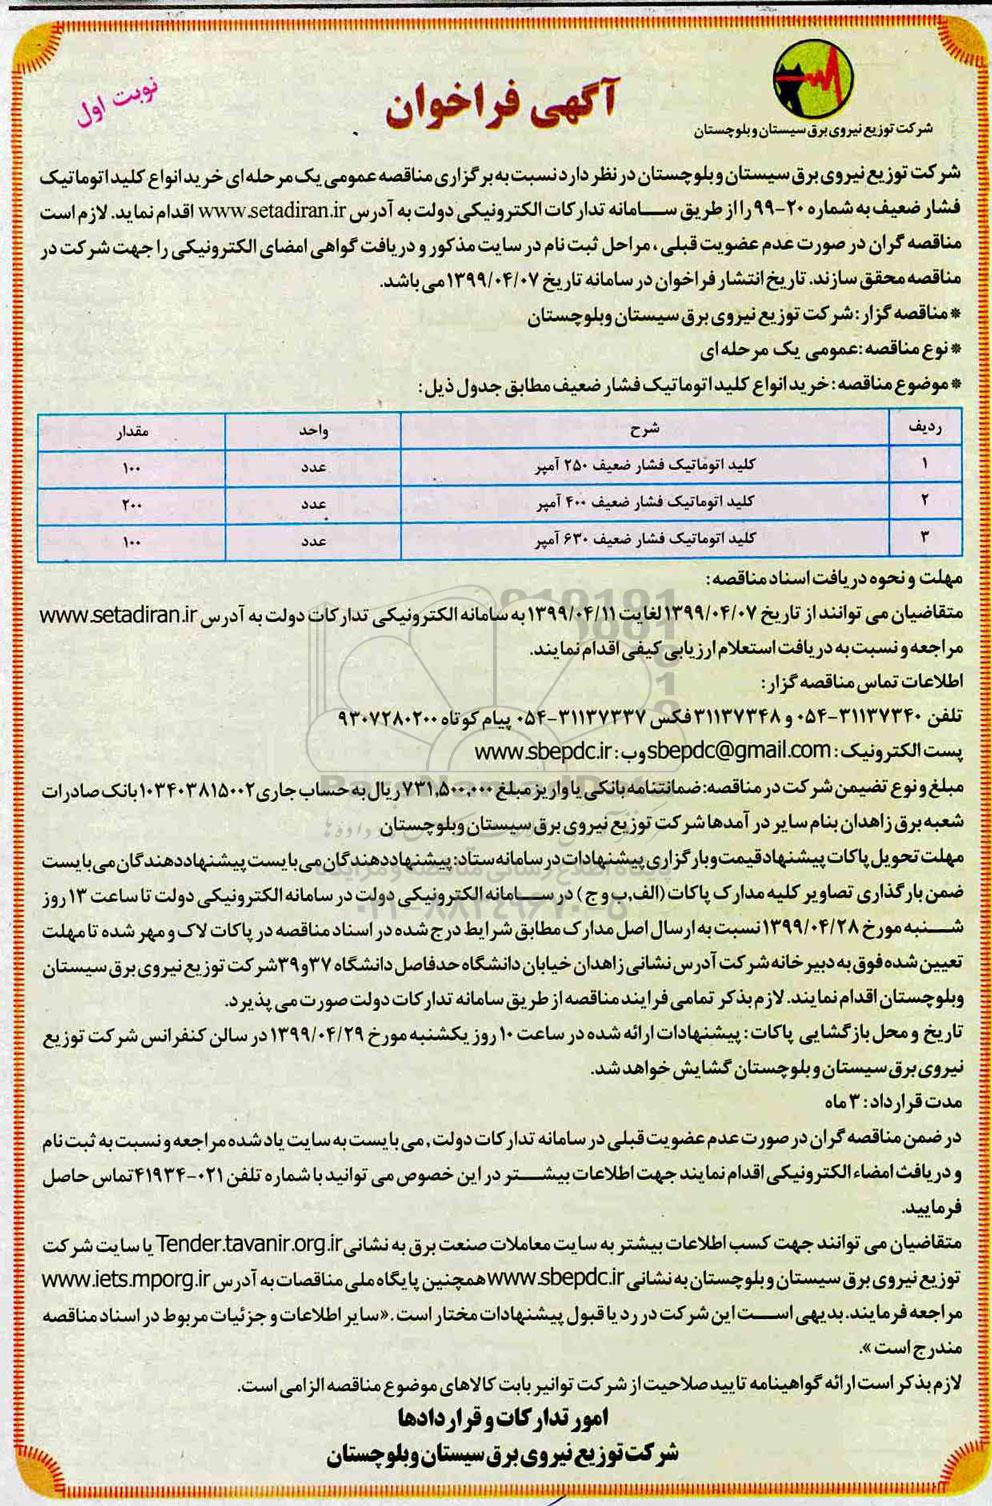 شرکت توزیع نیروی برق سیستان و بلوچستان
آگهی فراخوان
نوبت اول
شرکت توزیع نیروی برق سیستان و بلوچستان در نظر دارد نسبت به برگزاری مناقصه عمومی یک مرحله ای خرید انواع کلید اتوماتیک
فشار ضعیف به شماره ۲۰-۹۹ را از طریق سامانه تدارکات الکترونیکی دولت به آدرس www.setadiran.ir اقدام نماید. لازم است
مناقصه گران در صورت عدم عضویت قبلی ، مراحل ثبت نام در سایت مذکور و دریافت گواهی امضای الکترونیکی را جهت شرکت در
مناقصه محقق سازند. تاریخ انتشار فراخوان در سامانه تاریخ ۱۳۹۹/۰۴/۰۷ می باشد.
* مناقصه گزار : شرکت توزیع نیروی برق سیستان وبلوچستان
* نوع مناقصه :عمومی یک مرحله ای
* موضوع مناقصه : خرید انواع کلید اتوماتیک فشار ضعیف مطابق جدول ذیل :
ردیف شرح واحد مقدار
۱ کلید اتوماتیک فشار ضعیف ۲۵۰ آمپر عدد ۱۰۰
۲ کلید اتوماتیک فشار ضعیف ۴۰۰ آمپر عدد ۲۰۰
۳ کلید اتوماتیک فشار ضعیف ۶۳۰ آمپر عدد ۱۰۰
مهلت و نحوه دریافت اسناد مناقصه :
متقاضیان می توانند از تاریخ ۱۳۹۹/۰۴/۰۷ لغایت ۱۳۹۹/۰۴/۱۱ به سامانه الکترونیکی تدارکات دولت به آدرس www.setadiran.ir
مراجعه و نسبت به دریافت استعلام ارزیابی کیفی اقدام نمایند.
اطلاعات تماس مناقصه گزار :
تلفن ۳۱۱۳۷۳۴۰-۰۵۴ و ۳۱۱۳۷۳۴۸ فکس ۳۱۱۳۷۳۳۷-۰۵۴ پیام کوتاه ۹۳۰۷۲۸۰۲۰۰
پست الکترونیک : sbepdc@gmail.com وب : www.sbepdc.ir
مبلغ و نوع تضیمن شرکت در مناقصه: ضمانتنامه بانکی یا واریز مبلغ ۷۳۱,۵۰۰,۰۰۰ ریال به حساب جاری ۱۰۳۴۰۳۸۱۵۰۰۲ بانک صادرات
شعبه برق زاهدان بنام سایر در آمدها شرکت توزیع نیروی برق سیستان وبلوچستان
مهلت تحویل پاکات پیشنهاد قیمت وبارگزاری پیشنهادات در سامانه ستاد: پیشنهاد دهندگان می بایست پیشنهاد دهندگان می بایست
ضمن بارگذاری تصاویر کلیه مدارک پاکات (الف,ب و ج ) در سامانه الکترونیکی دولت در سامانه الکترونیکی دولت تا ساعت ۱۳ روز
شنبه مورخ ۱۳۹۹/۰۴/۲۸ نسبت به ارسال اصل مدارک مطابق شرایط درج شده در اسناد مناقصه در پاکات لاک و مهر شده تا مهلت
تعیین شده فوق به دبیرخانه شرکت آدرس نشانی زاهدان خیابان دانشگاه حدفاصل دانشگاه ۳۷و۳۹شرکت توزیع نیروی برق سیستان
وبلوچستان اقدام نمایند. لازم بذکر تمامی فرایند مناقصه از طریق سامانه تدارکات دولت صورت می پذیرد.
تاریخ و محل بازگشایی پاکات : پیشنهادات ارائه شده در ساعت ۱۰ روز یکشنبه مورخ ۱۳۹۹/۰۴/۲۹ در سالن کنفرانس شرکت توزیع
نیروی برق سیستان و بلوچستان گشایش خواهد شد.
مدت قرارداد : ۳ ماه
در ضمن مناقصه گران در صورت عدم عضویت قبلی در سامانه تدارکات دولت , می بایست به سایت یاد شده مراجعه و نسبت به ثبت نام
و دریافت امضاء الکترونیکی اقدام نمایند جهت اطلاعات بیشتر در این خصوص می توانید با شماره تلفن ۰۲۱-۴۱۹۳۴ تماس حاصل
فرمایید.
متقاضیان می توانند جهت کسب اطلاعات بیشتر به سایت معاملات صنعت برق به نشانی Tender.tavanir.org.ir یا سایت شرکت
توزیع نیروی برق سیستان و بلوچستان به نشانی www.sbepdc.ir همچنین پایگاه ملی مناقصات به آدرس www.iets.mporg.ir
مراجعه فرمایند. بدیهی است این شرکت در رد یا قبول پیشنهادات مختار است . «سایر اطلاعات و جزئیات مربوط در اسناد مناقصه
مندرج است ».
لازم بذکر است ارائه گواهینامه تایید صلاحیت از شرکت توانیر بابت کالاهای موضوع مناقصه الزامی است.
امور تدارکات و قراردادها
شرکت توزیع نیروی برق سیستان وبلوچستان